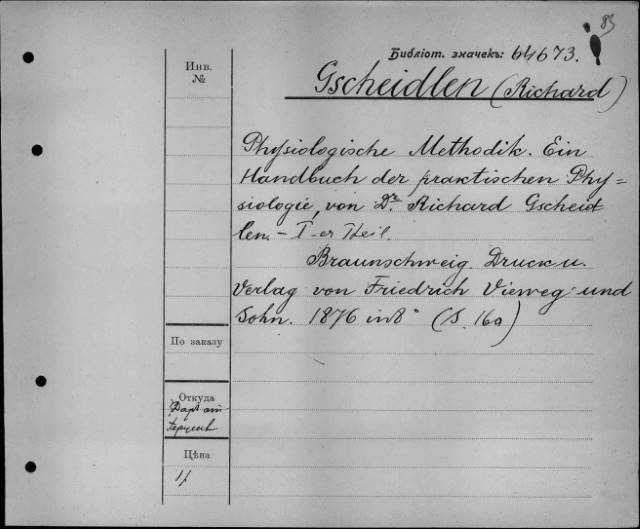 83
Библіот. значекъ: 64673.
Инв.
№
Gscheidlen (Richard)
Physiologische Methodik. Ein
Handbuch der praktischen Phy=
siologie, von Dr Richard Gscheid
len. - I-er Theil.
Braunschweig. Druck u.
Verlag von Friedrich Vieweg und
Sohn. 1876 in 8° (S. 160)
По заказу
Откуда
Цѣна